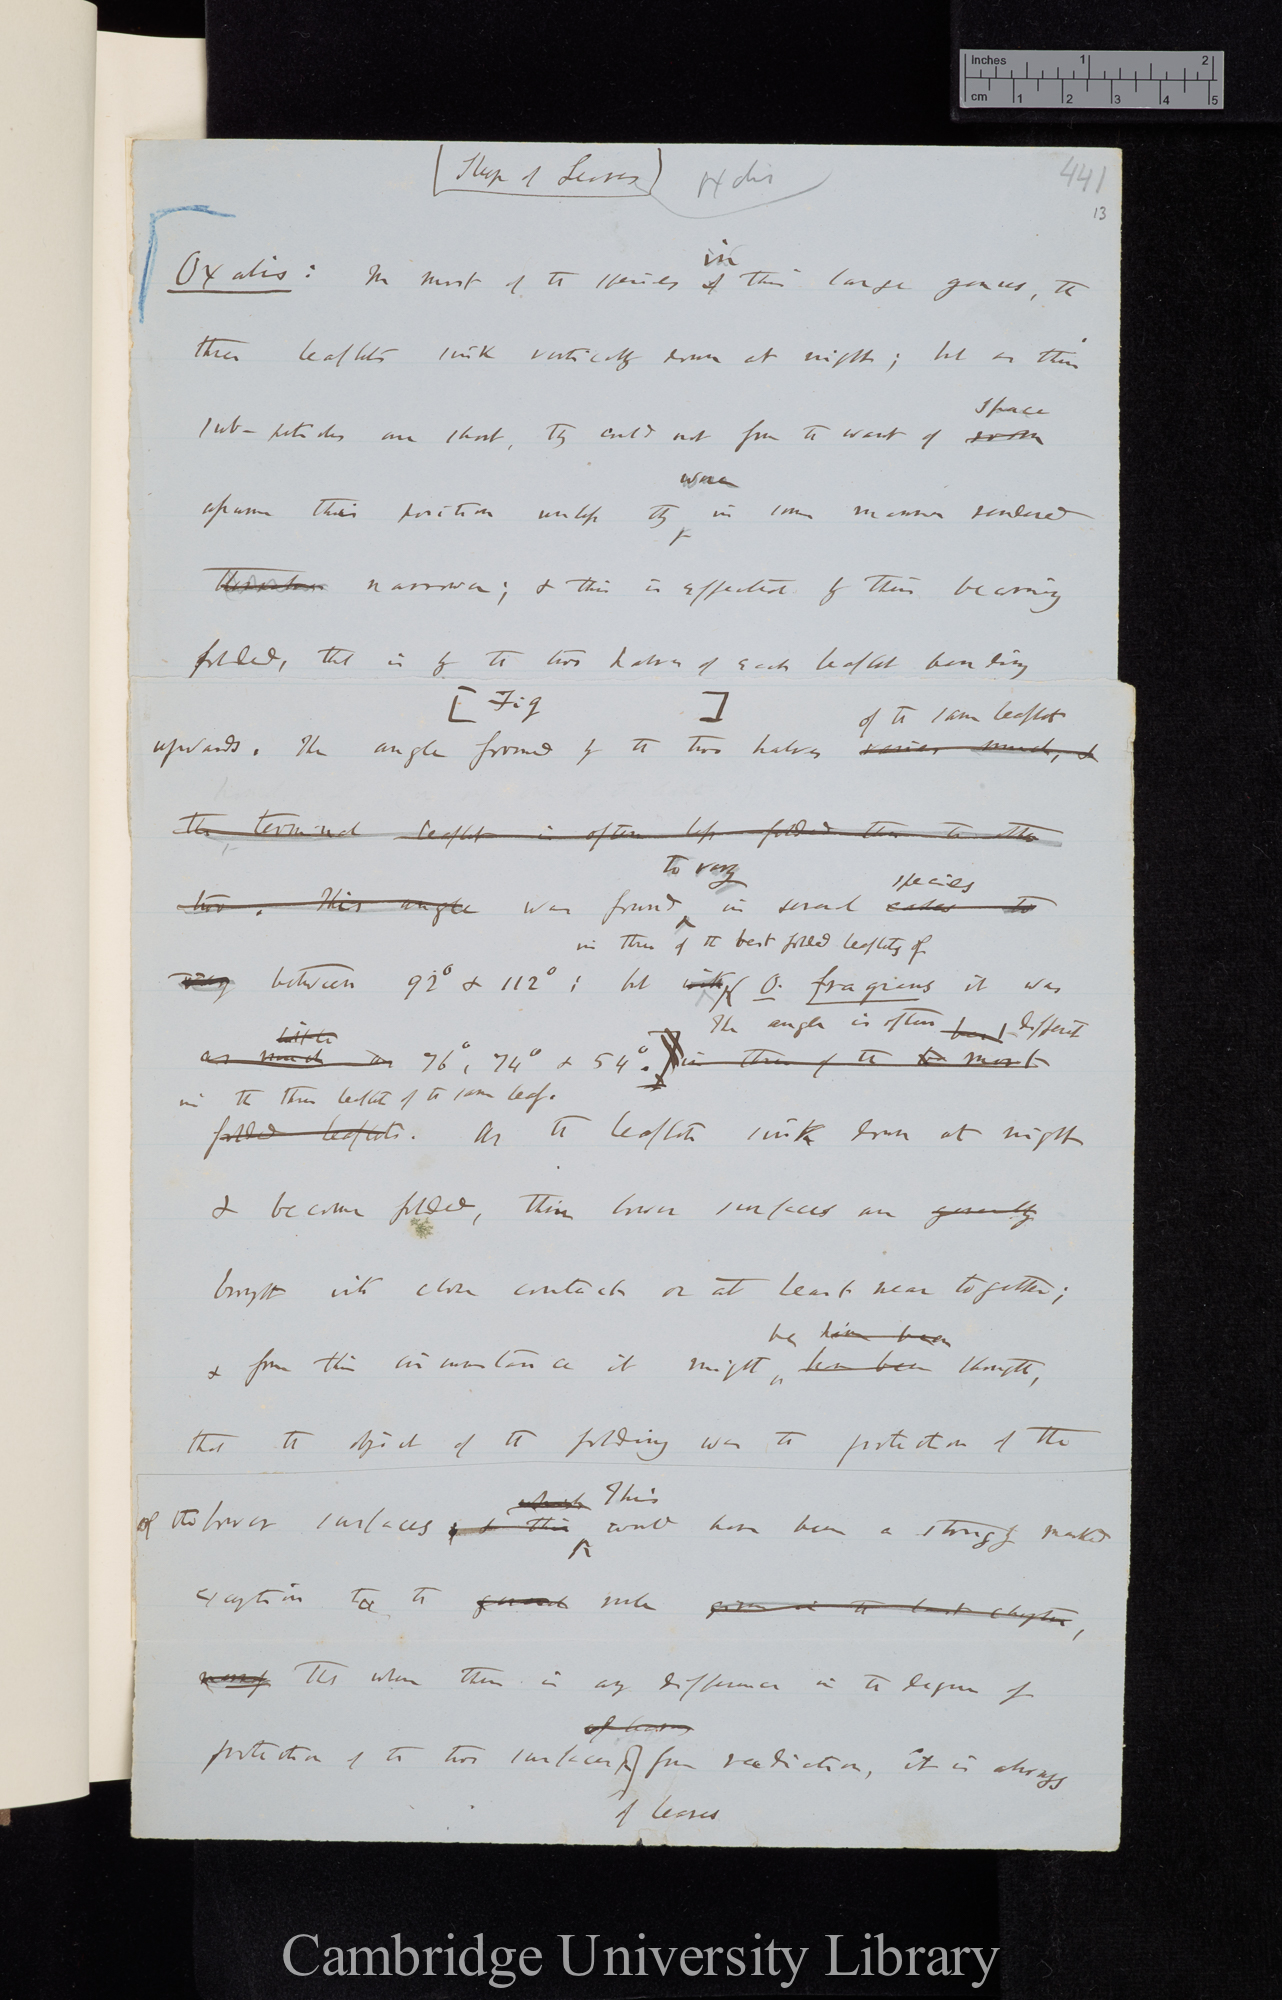 Inches 1 2
cm 1 2 3 4 5
(Sleep of Leaves) Oxalis
441
13
in
Oxalis: In most of the species of this large genus, the
three leaflets sink vertically down at night; but as their
space
sub-petioles are short, they could not from the want of room
were
assume this position unless they in some manner rendered
narrower; & this is effected by their becoming
folded, that is by the two halves of each leaflet bending
[Fig ]
of the same leaflet
upwards. The angle formed by the two halves varies much, &
the terminal leaflet is often less folded than the other
to vary species
two. This angle was found in several cases to
in three of the best folded leaflets of
vary between 92° & 112°; but with O. fragrans it was
little The angle is often different
as much as 76°, 74° & 54°. in three of the most
in the three leaflets of the same leaf.
folded leaflets. As the leaflets sink down at night
& become folded, their lower surfaces are generally
brought into close contact or at least near together;
be have been
& from this circumstance it might have been thought,
that the object of the folding was the protection of the
which This
of the lower surfaces, & this would have been a strongly marked
exception to the general rule given in the last chapter,
namely that when there is any difference in the degree of
of leaves
protection of the two surfaces from radiation, it is always
of leaves
Cambridge University Library